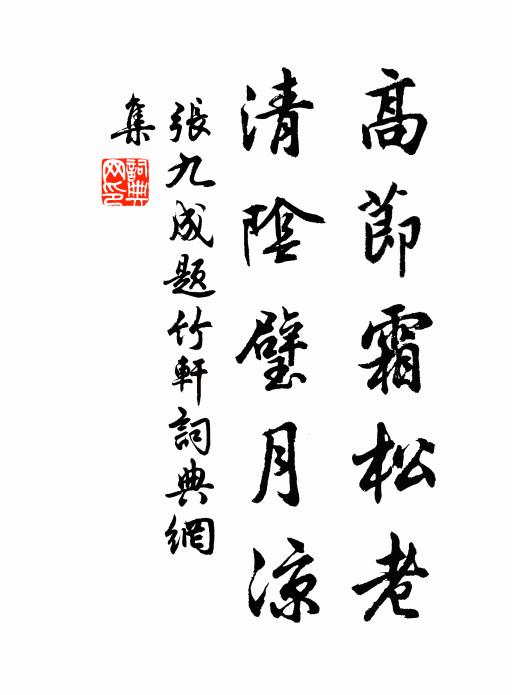 高節霜松老
清陰璧月涼
張九成題竹軒詞典網
集
詞典
網印